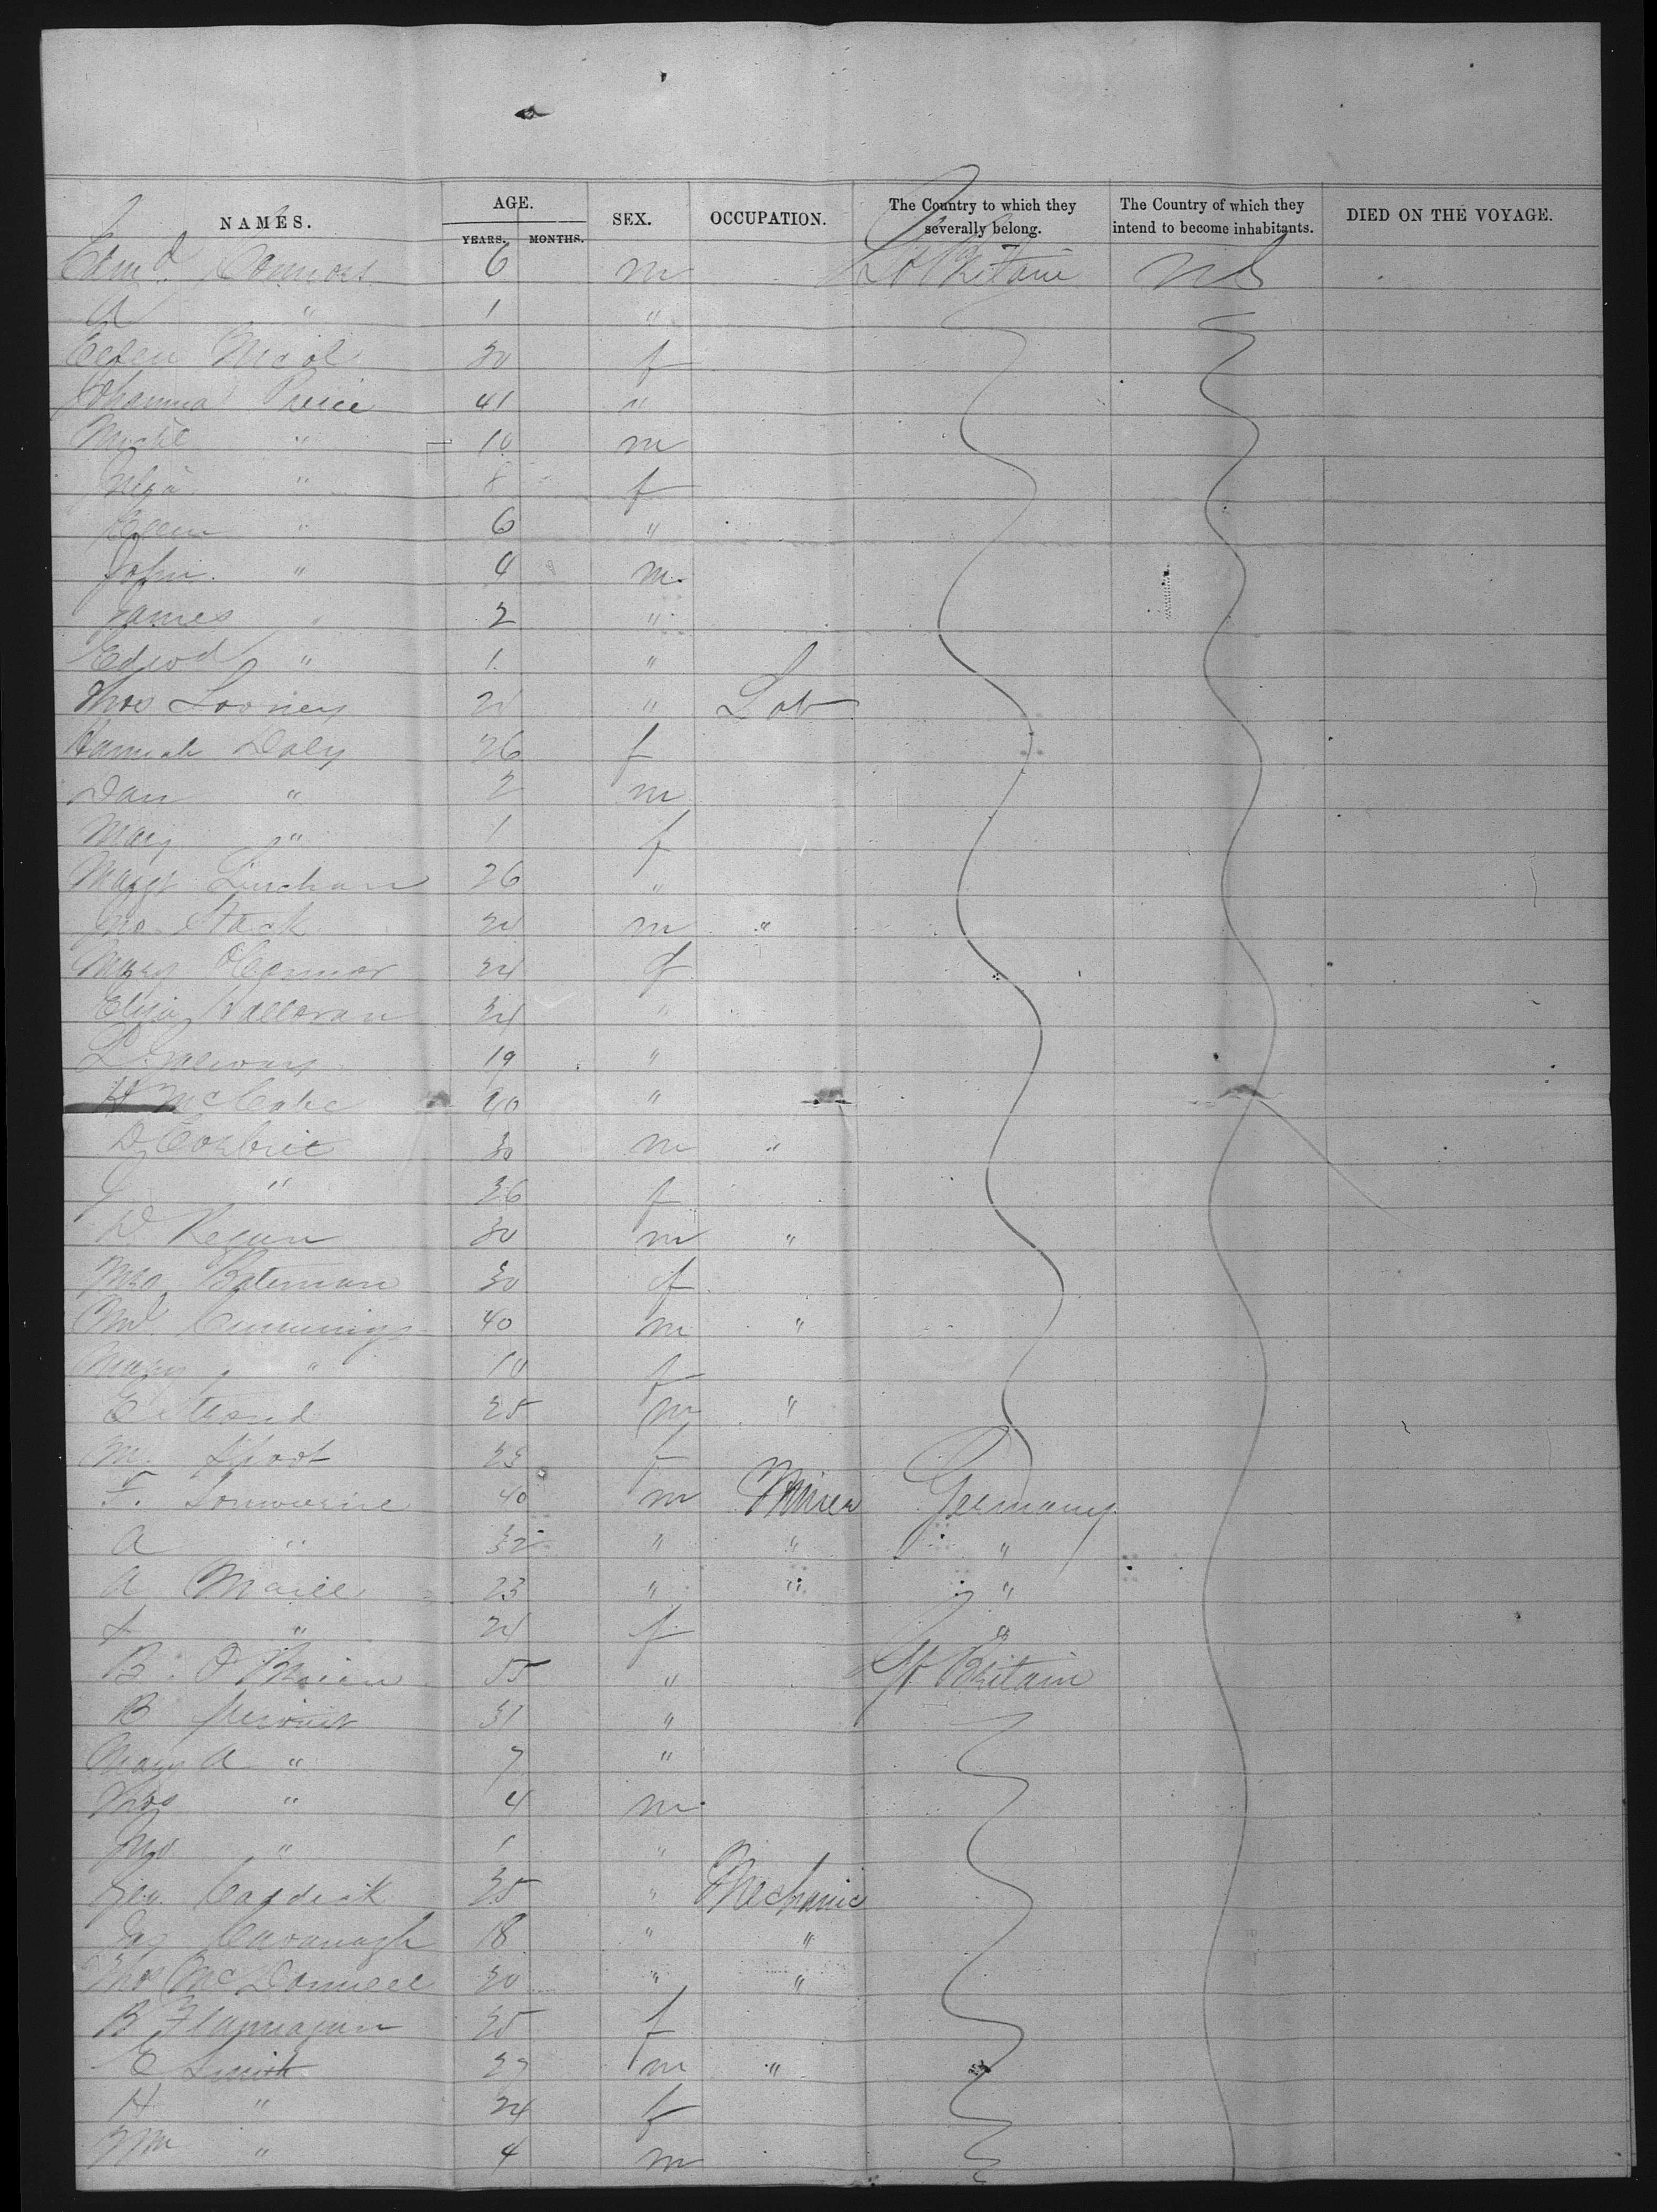 NAMES. AGE. YEARS. MONTHS. SEX. OCCUPATION. The Country to which they severally belong. The Country of which they intend to become inhabitants. DIED ON THE VOYAGE.
Edmd. Connors 6 m Gt Britain US
A " 1 "
Ellen 30 f
Johanna 41 "
Michl " 10 m
" 8 f
Ellen " 6 "
John. " 4 m.
James " 2 "
Edwd " 1. "
Thos Looney 21 " Lab
Hannah Daly 26 f
Dan " 2 m
Mary " 1 f
Margt Linehan 26 "
Jno. Stack m "
Mary O'Connor 24 f
Eliza Halloran 24 "
L. 19 "
H McCabe 40 "
D Corbrie 30 m "
J " 26 f
D. Regan 30 m "
Mrs Bateman 30 f
Md. Cummings 40 m "
Mary " 10 f
E. 25 m "
M. 23 f
F. 40 m Miner Germany
A " 32 " " "
A 23 " " "
" 24 f "
B. O'Brien 55 " Gt Britain
B 31 "
Mary A " 7 "
Thos " 4 m
Jno " 1 "
Geo. 35 " Mechanic
Jas Cavanagh 18 " "
Thos McDonnell 30 " "
B Flannagan 25 f
E Smith 27 m "
H " 24 f
Wm " 4 m